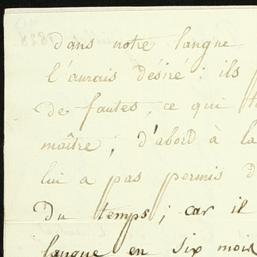 dans notre langue
l'aurais désiré: ils
de fautes, ce qui
maître; d'abord à la
lui a pas permis d
Du temps; car il
langue en six mois